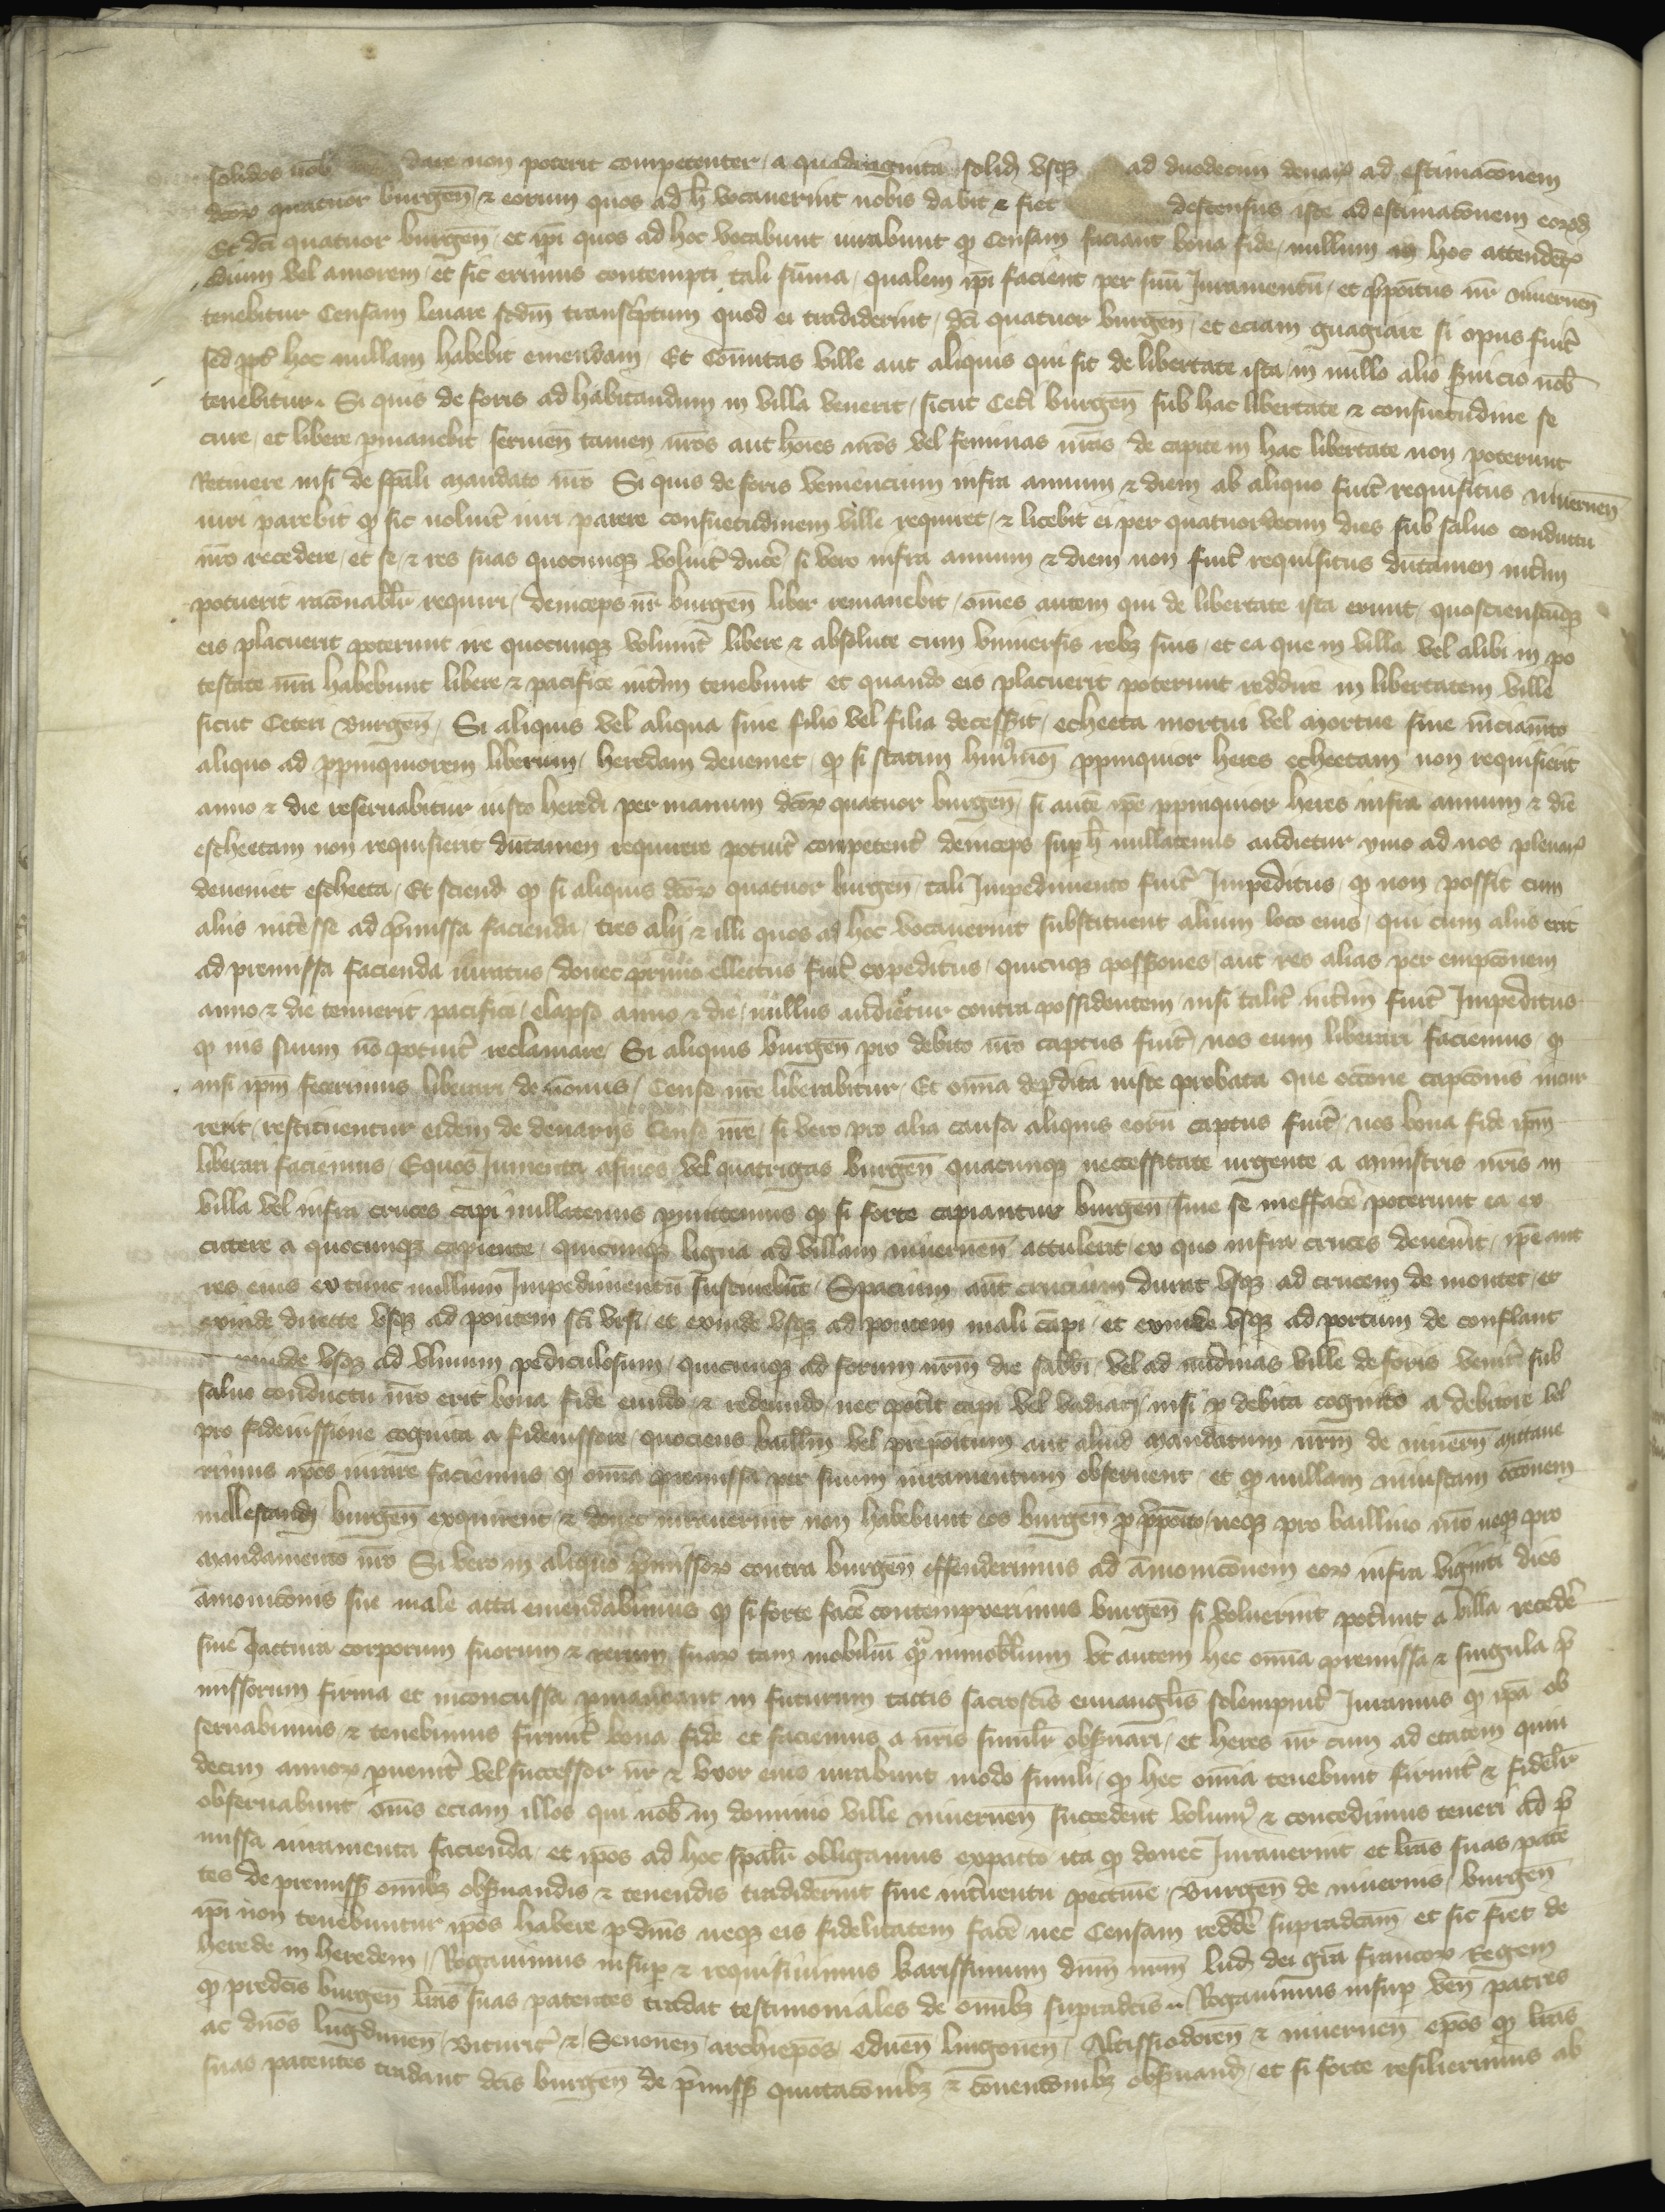 solidos nob̄ dare non poterit competenter / a quadraginta solid̄ vsqꝫ ad duodecim denar̄ ad estimac̄onem
dc̄oꝝ quatuor burgen̄ / ⁊ eorum quos ad h̄ vocauerint nobis dabit ⁊ fiet descensus iste ad estimac̄onem eoꝝd̄
Et dc̄i quatuor burgen̄ / et ip̄i quos ad hoc vocabunt iurabunt qꝫ Censam faciant bona fide / nullum in hoc attender̄
odium vel amorem / et sic erimus contempti tali sum̄a / qualem ip̄i facient per suū Juramentū / et p̄po᷒itus nr̄ niuernen̄
tenebitur Censam leuare sc̄dm transc̄ptum quod ei tradiderint / dc̄i quatuor burgen̄ / et eciam guagiare si opus fuit̄
sed ꝓpt̄ hoc nullam habebit emendam / Et Com̄itas ville aut aliquis qui sit de libertate ista / in nullo alio ẜuicio nob̄
tenebitur . Si quis de foris ad habitandum in villa venerit / sicut Cet̄i burgen̄ sub hac libertate ⁊ consuetudine se
cure / et libere ꝑmanebit seruien̄ tamen nr̄os aut ho᷒ies nr̄os vel feminas nr̄as de capite in hac libertate non poterunt
Retinere nisi de sp̄ali mandato nr̄o Si quis de foris veniencium infra annum ⁊ diem ab aliquo fuit̄ requisitus niuernen̄
iuri parebit qꝫ sic noluit̄ iuri parere consuetudinem ville requiret / ⁊ licebit ei per quatuordecim dies sub saluo conductu
nr̄o recedere / et se / ⁊ res suas quocunqꝫ voluit̄ ducer̄ si vero infra annum ⁊ diem non fuit̄ requisitus dūtamen int̄im
potuerit rac̄onabil̄r requiri / deinceps nr̄ burgen̄ liber remanebit / om̄es autem qui de libertate ista erunt / quocienscūqꝫ
eis placuerit poterunt ire quocunqꝫ volunt̄ libere ⁊ absolute cum vniuersis rebꝫ suis / et ea que in villa vel alibi in po
testate nr̄a habebunt libere ⁊ pacifice int̄im tenebunt et quando eis placuerit poterunt reddire in libertatem ville
sicut Ceteri burgen̄ / Si aliquis vel aliqua sine filio vel filia decesẜit / echeeta mortui vel mortue sine
aliquo ad ꝓpinquiorem liberum / heredam deueniet / qꝫ si statim ꝓpinquior heres echeetam non requisierit
anno ⁊ die reseruabitur iusto heredi per manum dc̄oꝝ quatuor burgen̄ / si autē ip̄e ꝓpinquior heres infra annum ⁊ diē
escheetam non requisierit dūtamen requirere potuit̄ competent̄ deinceps suꝑ h̄ nullatenus audietur ymo ad nos plenar̄
deueniet escheeta / Et sciend̄ qꝫ si aliquis dc̄oꝝ quatuor burgen̄ / tali Impedimento fuit̄ Impeditus / qꝫ non possit cum
aliis int̄esse ad p̄missa facienda / tres alij ⁊ illi quos ad hoc vocauerint substituent alium loco eius / qui cum aliis erit
ad premissa facienda iuratus donec primo ellectus fuit̄ expeditus / quicūqꝫ possẜiones / aut res alias per empc̄onem
anno ⁊ die tenuerit pacifice / elapso anno ⁊ die / nullus audietur contra possidentem / nisi talit̄ int̄im fuit̄ Impeditus
qꝫ ius suum nō potuit̄ reclamare / Si aliquis burgen̄ pro debito nr̄o captus fuit̄ / nos eum liberari faciemus / qꝫ
nisi ip̄m fecerimus liberari de / Cense nr̄e liberabitur / Et om̄ia deꝑdita iuste probata que occ̄one capc̄onis incur
rerit / restituentur eidem de denarijs Cense nr̄e / si vero pro alia causa aliquis eorū captus fuit̄ / nos bona fide ip̄m
liberari faciemus / Equos Jumenta asinos vel quatrigas burgen̄ quacunqꝫ neccessitate urgente a ministris nr̄is in
villa vel infra cruces capi nullatenus ꝑmittemus qꝫ si forte capiantur burgen̄ sine se meffacer̄ poterunt ea ex
cutere a quocunqꝫ capiente / quicunqꝫ ligna ad villam niuernen̄ attulerit / ex quo infra cruces deuenit̄ / ip̄e aut
res eius ex tunc nullum Impedimentū sustinebūt / Spacium aūt crucium durat vsqꝫ ad crucem de montet / et
exinde directe vsqꝫ ad pontem sc̄i vrsi / et exinde vsqꝫ ad pontem mali cāpi / et exinde vsqꝫ ad portum de conflant
exinde vsqꝫ ad vlmum pediculosum / quicunqꝫ ad forum nr̄m die sabb̄i / vel ad nūdinas ville de foris venit̄ sub
saluo conductu nr̄o erit bona fide eundo / ⁊ redeundo / nec pot̄it capi vel vadiari / nisi ꝓ debita cognito a debitore vel
pro fideiussione cognita a fideiussore / quociens bailliūm vel prepo᷒itum aut aliud mandatum nr̄m de niuern̄ mittaue
rimus ip̄os iurare faciemus / qꝫ om̄ia premissa per suum iuramentum obseruent / et qꝫ nullam iniustam occ̄onem
mollestand̄ burgen̄ exquirent / ⁊ donec iurauerint non habebunt eos burgen̄ ꝓ p̄po᷒ito / neqꝫ pro bailliuo nr̄o neqꝫ pro
mandamento nr̄o Si vero in aliquo p̄missoꝝ contra burgen̄ offenderimus ad am̄onic̄onem eoꝝ infra viginti dies
am̄onic̄onis sue male acta emendabimus qꝫ si forte facer̄ contempxerimus burgen̄ si voluerint pot̄unt a villa recedēr
sine Jactura corporum suorum ⁊ rerum suaꝝ tam mobiliū qͣꝫ inmobilium Vt autem hec om̄ia premissa ⁊ singula p̄
missorum firma et inconcussa ꝑmaneant in futurum tactis sacrosc̄is euuangl̄is solempnit̄ Iuramus qꝫ ip̄a ob
seruabimus ⁊ tenebimus firmit̄ bona fide / et faciemus a nr̄is simil̄r obẜuari / et heres nr̄ cum ad etatem quin
decim annoꝝ ꝑuenit̄ vel successor nr̄ ⁊ vxor eius iurabunt modo simili / qꝫ hec om̄ia tenebunt firmit̄ ⁊ fidel̄r
obseruabunt om̄s eciam illos qui nob̄ in dominio ville niuernen̄ succedent volum᷒ ⁊ concedimus teneri ad p̄
missa iuramenta facienda / et ip̄os ad hoc sp̄al̄r obligamus ex pacto ita qꝫ donec Iurauerint et lr̄as suas paten̄
tes de premiss̄ om̄ibꝫ obẜuandis ⁊ tenendis tradiderint sine int̄uentu peccunie / Burgen̄ de niuernis / burgen̄
ip̄i non tenebuntur ip̄os habere ꝓ dn̄is neqꝫ eis fidelitatem facer̄ / nec Censam redder̄ supradc̄am / et sic fiet de
herede in heredem / Rogauimus insuꝑ ⁊ requisiuimus karissimum dn̄m nr̄m lud̄ dei gr̄a francoꝝ Regem
qꝫ predc̄is burgen̄ lr̄as suas patentes tradat testimoniales de om̄ibꝫ supradc̄is .. Rogauimus insuꝑ ven̄ patres
ac dn̄os lugdunen̄ / Bituric̄ ⁊ / Senonen̄ archiep̄os / Eduen̄ lingonen̄ / Altissiodoren̄ ⁊ niuernen̄ ep̄os qꝫ lr̄as
suas patentes tradant dc̄is burgen̄ de p̄miss̄ quittac̄onibꝫ ⁊ c̄ouenc̄onibꝫ obẜuand̄ / et si forte resilierimus ab